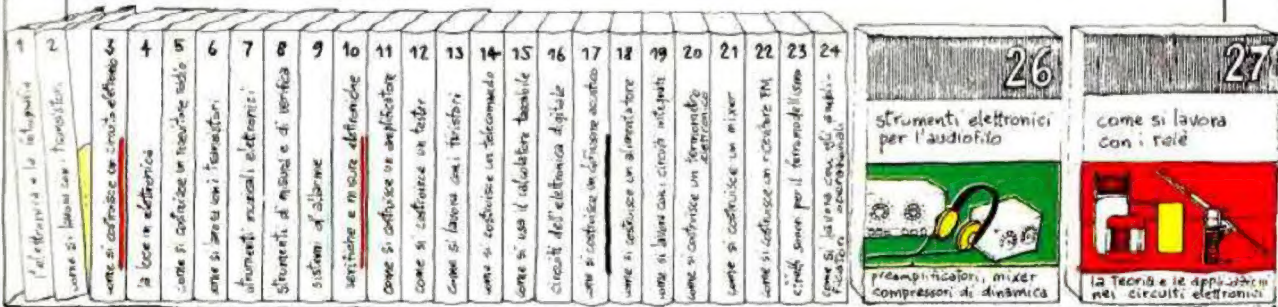 1 l'elettronica e la fotografia
2 come si lavora con i transistori
3 come si costruisce un circuito elettronico
4 la luce in elettronica
5 come si costruisce un ricevitore radio
6 come si lavora con i transistori
7 strumenti musicali elettronici
8 strumenti di misura e di verifica
9 sistemi d'allarme
10 verifiche e misure elettroniche
11 come si costruisce un amplificatore
12 come si costruisce un tester
13 come si lavora con i tiristori
14 come si costruisce un telecomando
15 come si usa il calcolatore tascabile
16 circuiti dell'elettronica digitale
17 come si costruisce un diffusore acustico
18 come si costruisce un alimentatore
19 come si lavora con i circuiti integrati
20 come si costruisce un termometro elettronico
21 come si costruisce un mixer
22 come si costruisce un ricevitore FM
23 effetti sonori per il ferromodellismo
24 come si lavora con gli ampli-
ficatori operazionali
26
strumenti elettronici
per l'audiofilo
preamplificatori, mixer
compressori di dinamica
27
come si lavora
con i relè
la teoria e le applicazioni
nei circuiti elettronici